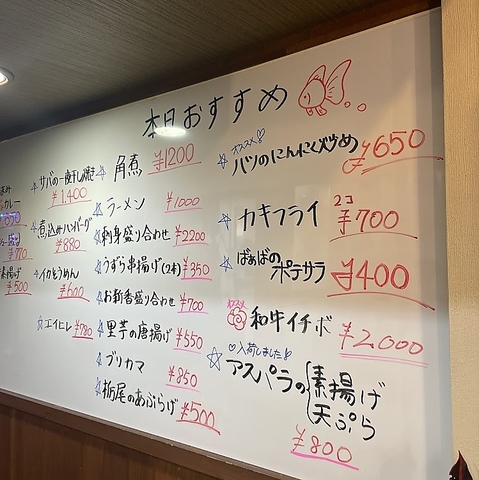 本日おすすめ
オススメ♡
☆ハツのにんにく炒め ¥650
☆カキフライ 2コ ¥700
☆ばぁばのポテサラ ¥400
和牛イチボ ¥2,000
♡入荷しました♡
☆アスパラの 素揚げ
天ぷら
¥800
☆角煮 ¥1200
☆ラーメン ¥1000
☆刺身盛り合わせ ¥2200
☆うずら串揚げ(2本) ¥350
☆お新香盛り合わせ ¥700
☆里芋の唐揚げ ¥550
☆ブリカマ ¥850
☆栃尾のあぶらげ ¥500
☆サバの一夜干し焼き
¥1,400
☆煮込みハンバーグ
¥880
☆イカそうめん
¥600
☆エイヒレ ¥780
カレー
¥770
素揚げ
¥500